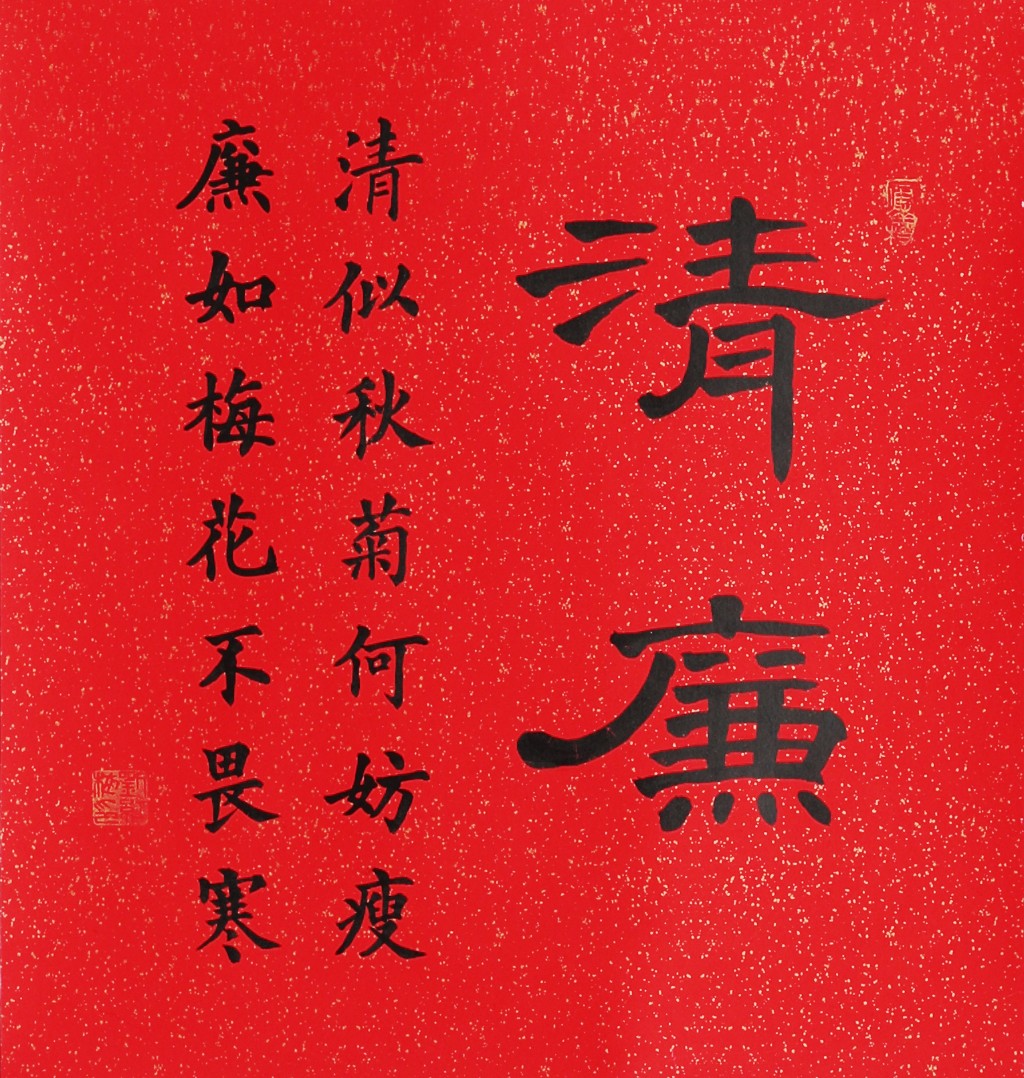 清廉
清似秋菊何妨瘦
廉如梅花不畏寒